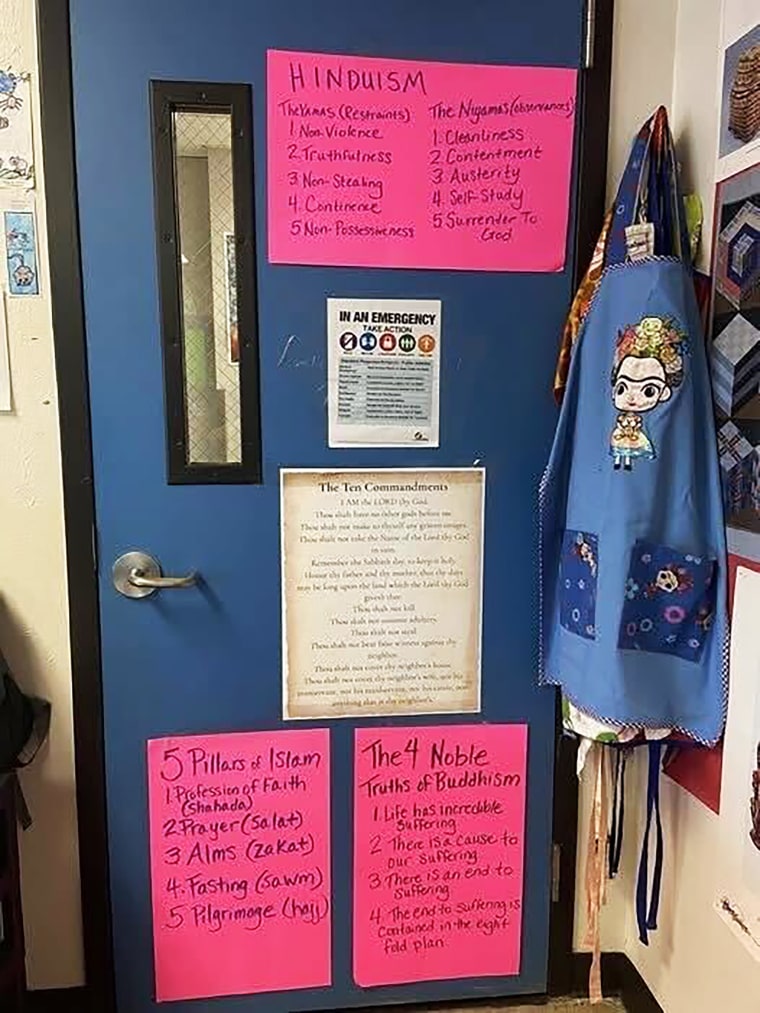 HINDUISM
The Yamas (Restraints)
1 Non-Violence
2. Truthfulness
3 Non-Stealing
4. Continence
5 Non-Possessiveness
The Niyamas (observances)
1. Cleanliness
2 Contentment
3 Austerity
4. Self-Study
5 Surrender To
God
IN AN EMERGENCY
TAKE ACTION
The Ten Commandments
I AM the LORD thy God.
Thou shalt have no other gods before me.
Thou shalt not make to thyself any graven images.
Thou shalt not take the Name of the Lord thy God
in vain.
Remember the Sabbath day, to keep it holy.
Honor thy father and thy mother, that thy days
may be long upon the land which the Lord thy God
giveth thee.
Thou shalt not kill.
Thou shalt not commit adultery.
Thou shalt not steal.
Thou shalt not bear false witness against thy
neighbor.
Thou shalt not covet thy neighbor's house.
Thou shalt not covet thy neighbor's wife, nor his
manservant, nor his maidservant, nor his cattle, nor
anything that is thy neighbor's.
5 Pillars of Islam
1. Profession of Faith
(Shahada)
2 Prayer (Salat)
3 Alms (zakat)
4. Fasting (sawm)
5 Pilgrimage (hajj)
The 4 Noble
Truths of Buddhism
1. Life has incredible
Suffering
2 There is a cause to
our suffering
3 There is an end to
Suffering
4. The end to suffering is
contained in the eight
fold plan.